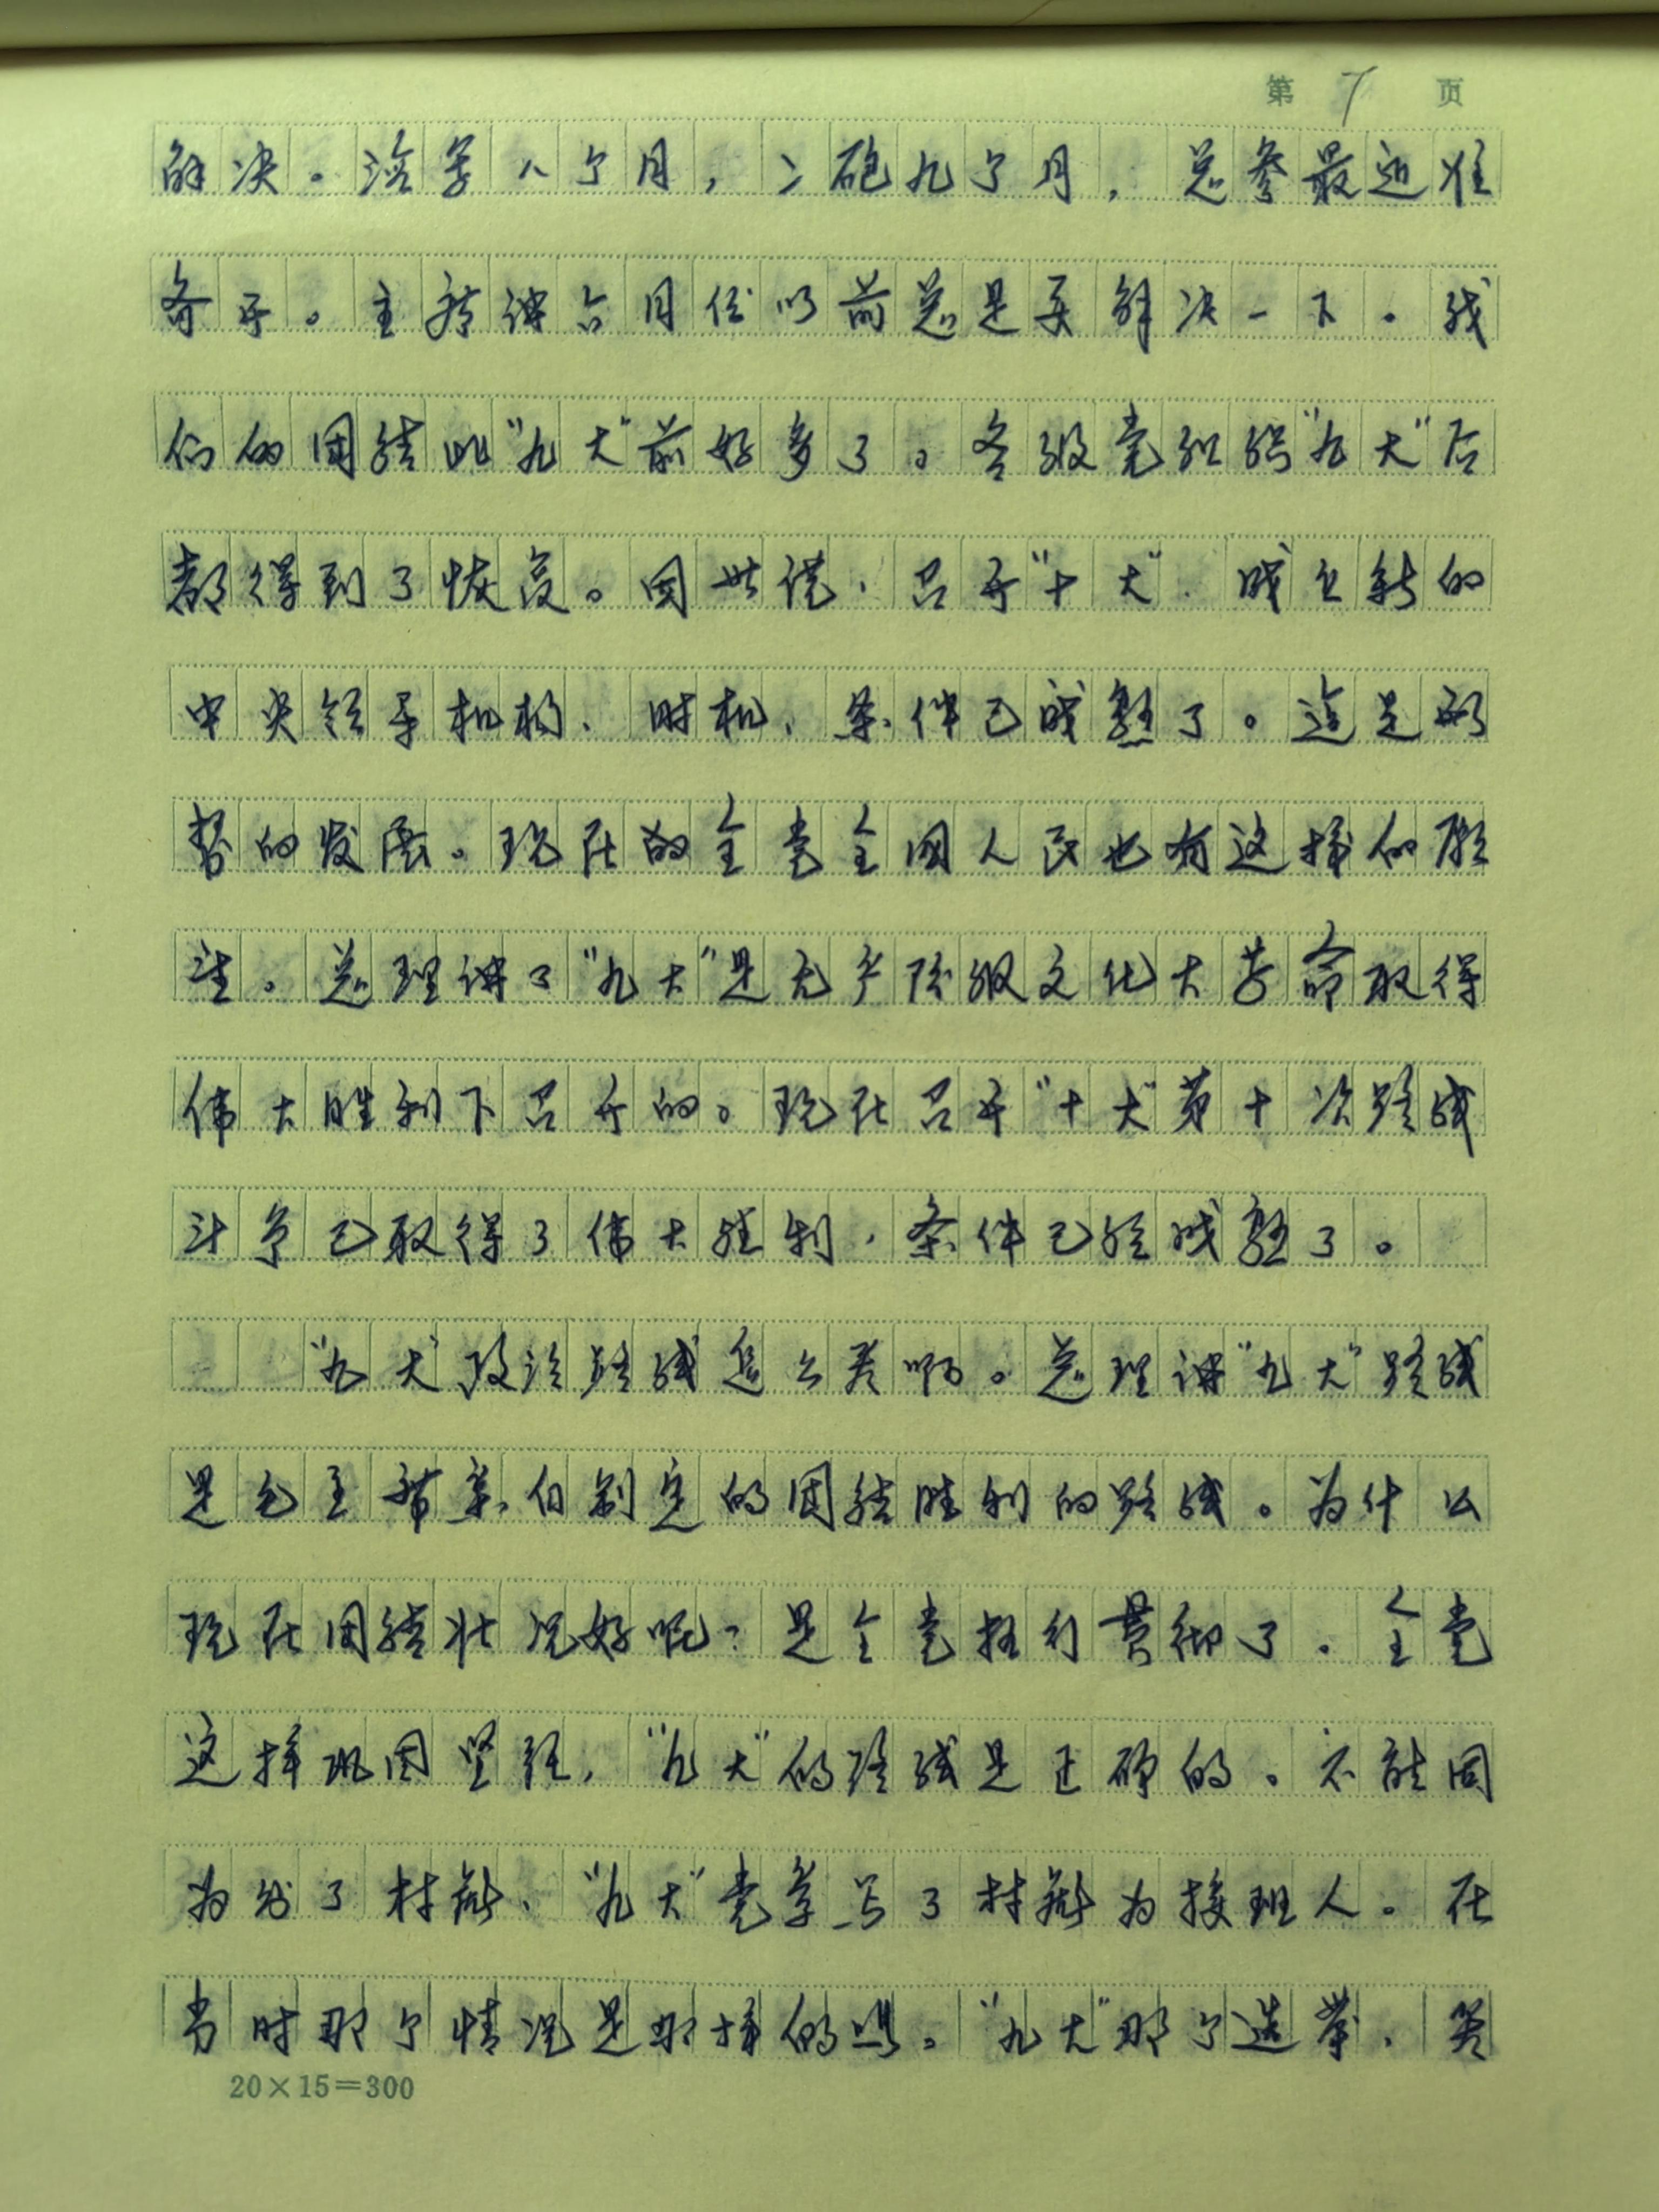 第 7 页
解决。济军八个月，二砲九个月，总参最近准
备开。主席讲六月份以前总是要解决一下。我
们的团结比“九大”前好多了。各级党组织“九大”后
都得到了恢复。因此说，召开“十大”，成立新的
中央领导机构、时机、条件已成熟了。这是形
势的发展。现在的全党全国人民也有这样的愿
望。总理讲了“九大”是无产阶级文化大革命取得
伟大胜利下召开的。现在召开“十大”第十次路线
斗争已取得了伟大胜利，条件已经成熟了。
“九大”政治路线怎么着啊。总理讲“九大”路线
是毛主席亲自制定的团结胜利的路线。为什么
现在团结状况好呢？是全党执行贯彻了。全党
这样巩固坚强，“九大”的路线是正确的。不能因
为出了林彪、“九大”党章写了林彪为接班人。在
当时那个情况是那样的嘛。“九大”那个选举、
20×15=300